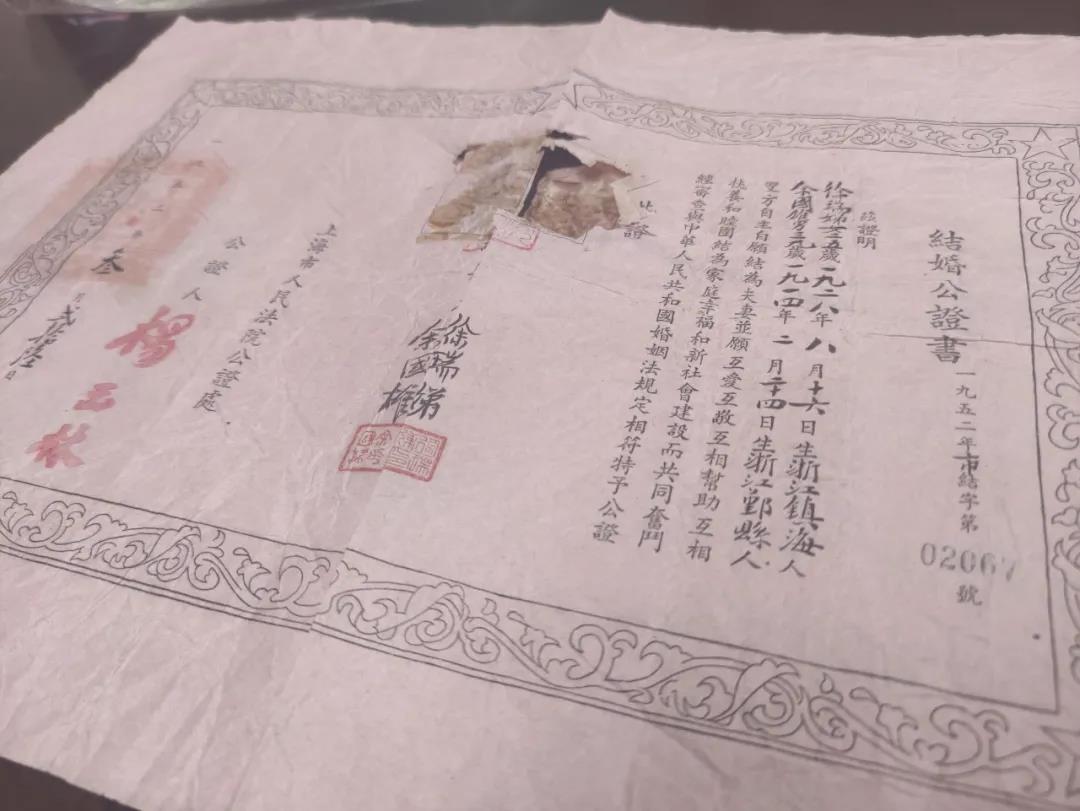 結婚公證書
一九五二年市結字第02067號
茲證明
徐瑞娣 歲一九二八年八月十六日生浙江鎮海人
余國雄 歲一九一四年二月二十四日生浙江鄞縣人
雙方自主自願結為夫妻並願互愛互敬互相幫助互相
扶養和睦團結為家庭幸福和新社會建設而共同奮鬥
經審查與中華人民共和國婚姻法規定相符特予公證
此證
徐瑞娣
余國雄
上海市人民法院公證處
公證人 楊
一九五二年叁月貳拾陸日